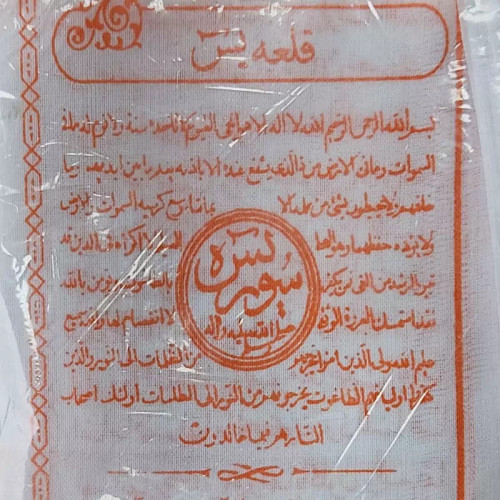 قلعه یس
بسم الله الرحمن الرحیم الله لا اله الا هو الحی القیوم لا تاخذه سنة ولا نوم له ما فی
السموات وما فی الارض من ذا الذی یشفع عنده الا باذنه یعلم ما بین ایدیهم وما
خلفهم ولا یحیطون بشیٔ من علمه الا بما شاء وسع کرسیه السموات والارض
ولا یوده حفظهما وهو العلی العظیم لا اکراه فی الدین قد
تبین الرشد من الغی فمن یکفر بالطاغوت ویومن بالله
فقد استمسک بالعروة الوثقی لا انفصام لها والله سمیع
علیم الله ولی الذین امنوا یخرجهم من الظلمات الی النور والذین
کفروا اولیاؤهم الطاغوت یخرجونهم من النور الی الظلمات اولئک اصحاب
النار هم فیها خالدون
سوره یس
صلی الله علیه واله
وسلم